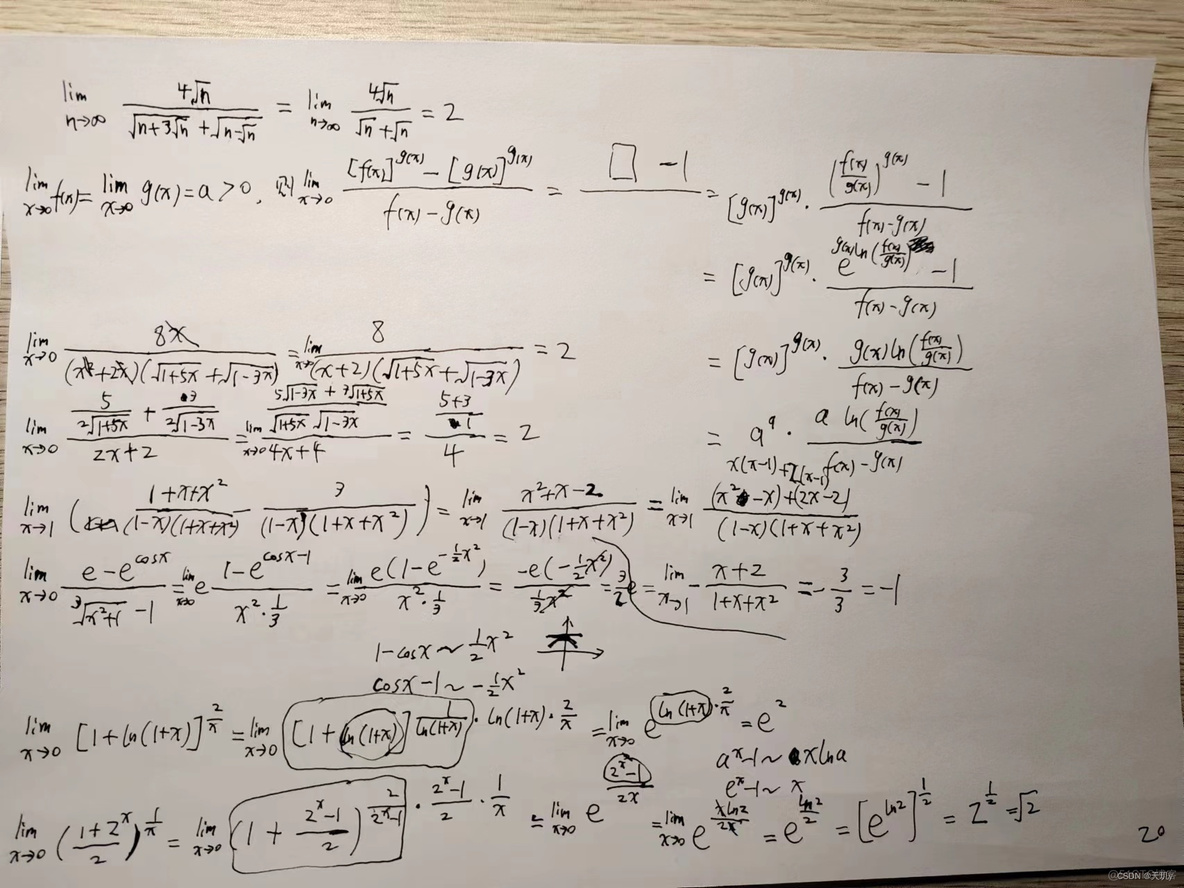 lim n→∞ 4√n / (√(n+3√n) + √(n-√n)) = lim n→∞ 4√n / (√n + √n) = 2
lim x→0 f(x) = lim x→0 g(x) = a > 0, 则 lim x→0 ([f(x)]^g(x) - [g(x)]^g(x)) / (f(x) - g(x)) = □ - 1 / = [g(x)]^g(x) · ((f(x)/g(x))^g(x) - 1) / (f(x) - g(x))
= [g(x)]^g(x) · (e^(g(x) ln(f(x)/g(x))) - 1) / (f(x) - g(x))
lim x→0 8x / ((x²+2x)(√(1+5x) + √(1-3x))) = lim x→0 8 / ((x+2)(√(1+5x) + √(1-3x))) = 2
= [g(x)]^g(x) · g(x) ln(f(x)/g(x)) / (f(x) - g(x))
lim x→0 (5/(2√(1+5x)) + 3/(2√(1-3x))) / (2x+2) = lim x→0 ((5√(1-3x) + 3√(1+5x)) / (√(1+5x) √(1-3x))) / (4x+4) = ((5+3)/1) / 4 = 2
= a^a · a ln(f(x)/g(x)) / (f(x) - g(x))
x(x-1)+2(x-1)
lim x→1 ((1+x+x²) / ((1-x)(1+x+x²)) - 3 / ((1-x)(1+x+x²))) = lim x→1 (x²+x-2) / ((1-x)(1+x+x²)) = lim x→1 ((x²-x)+(2x-2)) / ((1-x)(1+x+x²))
lim x→0 (e - e^cosx) / (³√(x²+1) - 1) = lim x→0 e (1-e^(cosx-1)) / (x²·1/3) = lim x→0 e(1-e^(-½x²)) / (x²·1/3) = -e(-½x²) / (1/3 x²) = 3/2 e
= lim x→1 - (x+2) / (1+x+x²) = - 3/3 = -1
1-cosx ~ ½x²
cosx-1 ~ -½x²
lim x→0 [1+ln(1+x)]^(2/x) = lim x→0 [1+ln(1+x)]^(1/ln(1+x) · ln(1+x) · 2/x) = lim x→0 e^(ln(1+x)·2/x) = e²
a^x-1 ~ xlna
e^x-1 ~ x
lim x→0 ((1+2^x)/2)^(1/x) = lim x→0 (1 + (2^x-1)/2)^(2/(2^x-1) · (2^x-1)/2 · 1/x) = lim x→0 e^((2^x-1)/2x) = lim x→0 e^(xln2/2x) = e^(ln2/2) = [e^ln2]^½ = 2^½ = √2
20